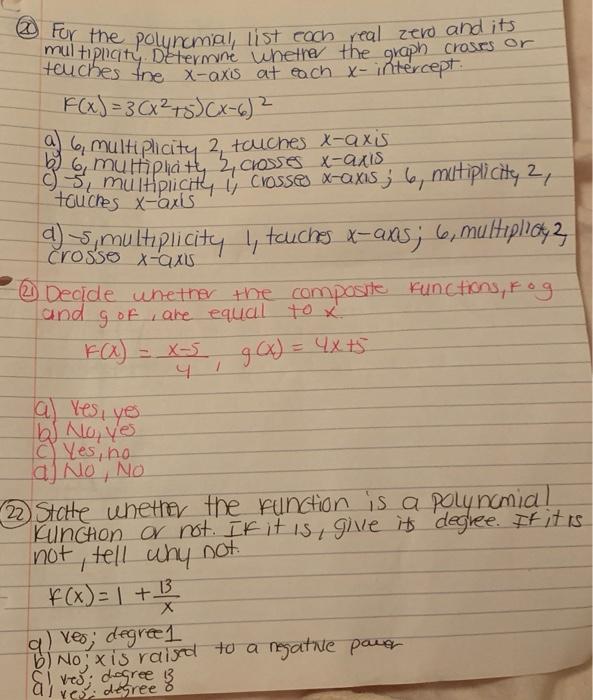 For the polynomial, list each real zero and its
multiplicity. Determine whether the graph crosses or
touches the x-axis at each x-intercept.
F(x)=3(x²+5)(x-6)²
a) 6, multiplicity 2, touches x-axis
b) 6, multiplicity 2, crosses x-axis
c) -5, multiplicity 1, crosses x-axis; 6, multiplicity 2,
touches x-axis
d) -5, multiplicity 1, touches x-axis; 6, multiplicity 2,
crosses x-axis
21 Decide whether the composite functions, F o g
and g o F, are equal to x.
F(x) = x-5/4, g(x) = 4x+5
a) Yes, yes
b) No, Yes
c) Yes, no
d) No, No
22 State whether the function is a polynomial
function or not. If it is, give its degree. If it is
not, tell why not.
f(x) = 1 + 13/x
a) Yes; degree 1
b) No; x is raised to a negative power
c) Yes; degree 13
d) Yes; degree